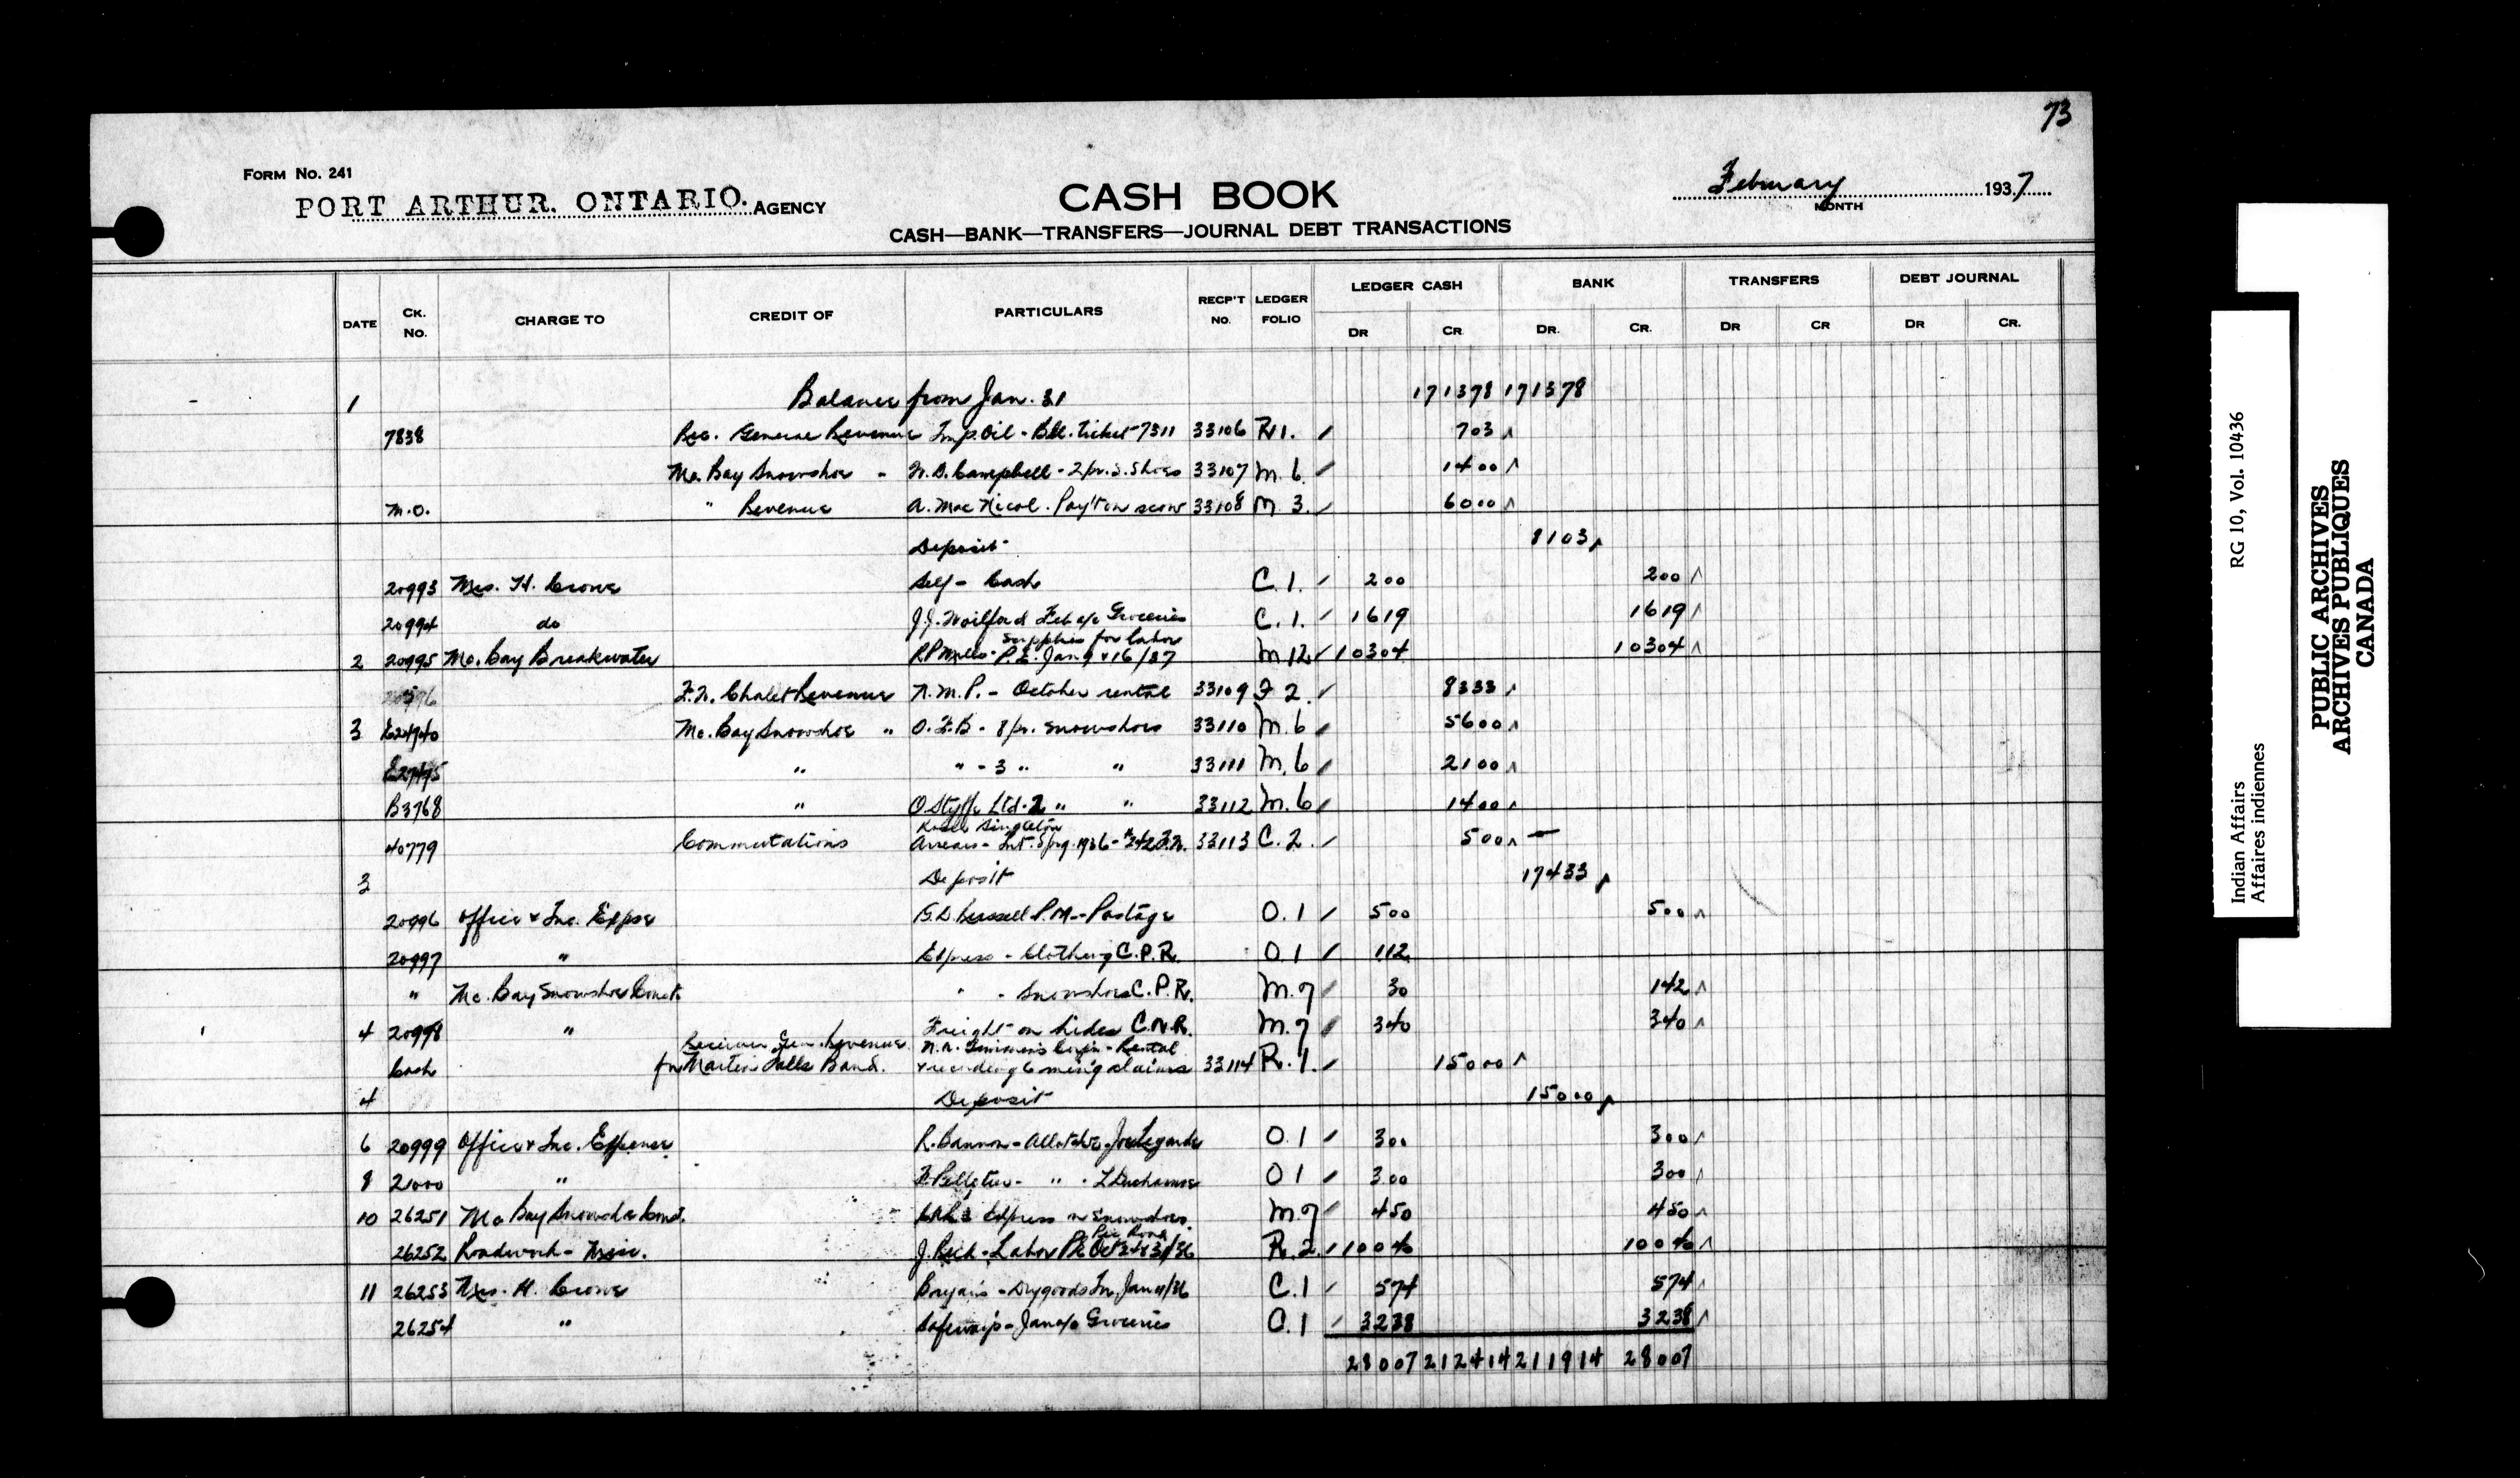 73
FORM NO. 241
PORT ARTHUR, ONTARIO. AGENCY
CASH BOOK
February 1937
MONTH
CASH—BANK—TRANSFERS—JOURNAL DEBT TRANSACTIONS
DATE CK. NO. CHARGE TO CREDIT OF PARTICULARS RECP'T NO. LEDGER FOLIO LEDGER CASH BANK TRANSFERS DEBT JOURNAL
DR CR DR. CR. DR CR DR CR.
1 Balance from Jan. 31 171378 171378
7838 Rec. General Revenue Imp. Oil - Bll. ticket 7311 33106 R1. 703
Mo. Bay Snowshoe " Campbell - 2 pr. S. Shoes 33107 M. 6. 1400
M.O. " Revenue A. Mac Nicol. Pay't on scow 33108 M 3. 6000
Deposit 8103
20993 Mrs. H. Crowe Self - Cash C. 1. 200 200
20994 do J.J. Feb a/c Groceries C. 1. 1619 1619
2 20995 Mo. Bay Breakwater R.P. Mills - Supplies for labor P.L. Jan 9 & 16/37 M 12 10304 10304
F.N. Chalet Revenue N.M.P. - October rental 33109 F 2. 8333
3 Mo. Bay Snowshoe " O.F.B - 8 pr. Snowshoes 33110 M. 6 5600
" " - 3 " " 33111 M. 6 2100
B3768 " O Styffe Ltd - 2 " " 33112 M. 6 1400
40779 Commutations Singleton Arrears - Int. Spg. 1936 - #242 F.N. 33113 C. 2. 500 —
3 Deposit 17433
20996 Office & Inc. Expse Russell P.M. - Postage O. 1 500 500
20997 " Express - Clothing C.P.R. O 1 112
" Mo. Bay Snowshoe Const. " - Snowshoes C.P.R. M. 7 30 142
4 20998 " Freight on hides C.N.R. M. 7 340 340
Cash Receiver Gen. Revenue for Martin Falls Band. Rental & recording 6 min'g claims 33114 R. 1. 15000
4 Deposit 15000
6 20999 Office & Inc. Expense R. Bannon - Joe Legarde O. 1 300 300
8 21000 " Pelletier - " - L Duchamse O 1 300 300
10 26251 Mo Bay Snowshoe Const. Express on Snowshoes. M. 7 450 450
26252 Roadwork - Misc. J. - Labor Pic Road Oct 24 & 31/36 R. 2. 10040 10040
11 26253 Mrs. H. Crowe Bryan's - Drygoods Inv. Jan 11/36 C. 1 574 574
26254 " Safeway's - Jan a/c Groceries C. 1 3238 3238
28007 212414 211914 28007
Indian Affairs RG 10, Vol. 10436
Affaires indiennes
PUBLIC ARCHIVES
ARCHIVES PUBLIQUES
CANADA